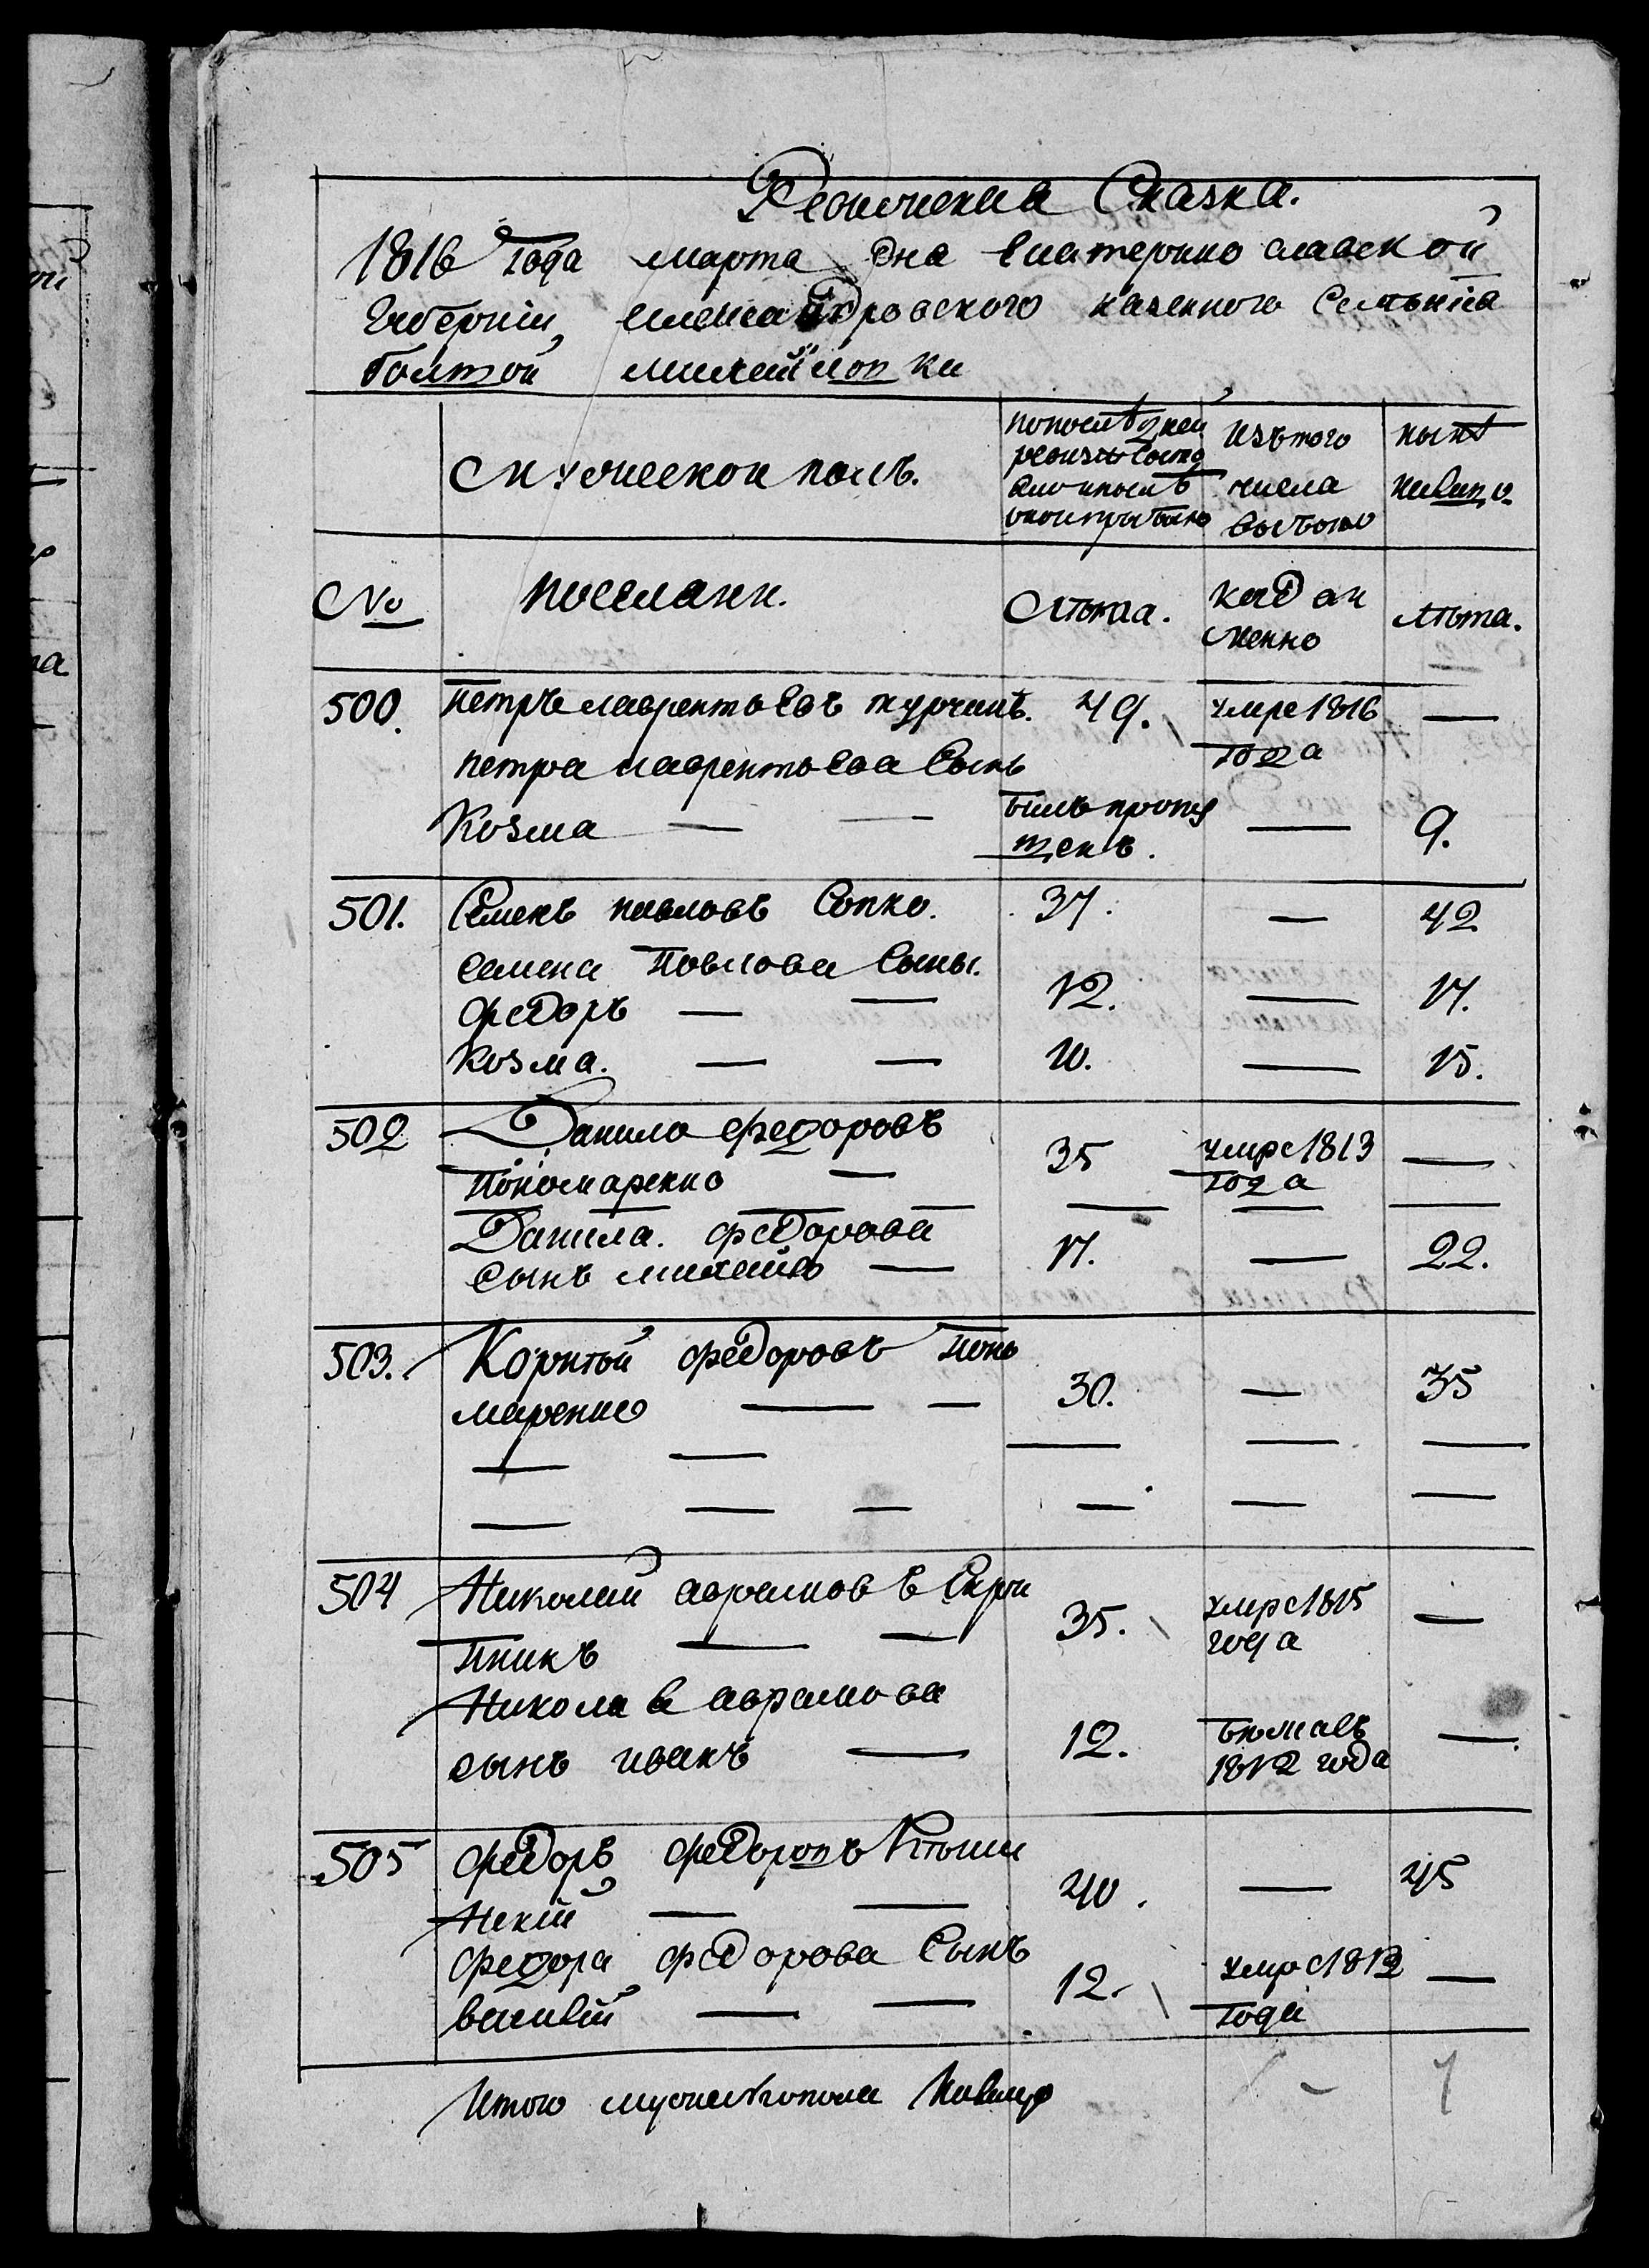 Ревижская Сказка.
1816 года марта дня Екатерино славской
Губернии, александровского казенного Селения
болтой михайловки
Мужеской полъ.
попоследней ревизы состо
изътого числа выбыло
ныне налицо
№ поселяни. Лъта. когда имянно лъта.
500. Петръ лаврентьевъ турчинъ. 49. умре 1816 года —
петра лаврентьева Сынъ
Козма — — билъ пропу щенъ. — 9.
501. Семенъ павловъ Сопко. 37. — 42
семена Повлова Сыны.
федоръ — — 12. — 17.
Козма. — — 10. — 15.
502 Данило федоровъ
Пономаренко — 35 умре 1813 года —
Данила. федорова
сынъ михайло — 17. — 22.
503. Корнѣй федоровъ Поно
маренко — — 30. — 35
504 Николай аврамовъ Скри
пникъ — — 35. умре 1815 года —
Николая аврамова
сынъ иванъ — 12. бежалъ 1812 года —
505 федоръ федоровъ
нскій — — 40. — 45
федора федорова Сынъ
василій — — 12. умре 1812 года —
Итого мужескаго пола налицо 7